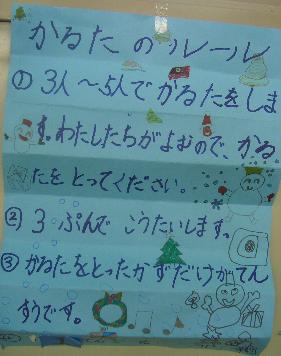 かるたのルール
① 3人〜5人でかるたをしま
す。わたしたちがよむので、かる
たをとってください。
② 3ぷんでこうたいします。
③ かるたをとったかずだけがてん
すうです。